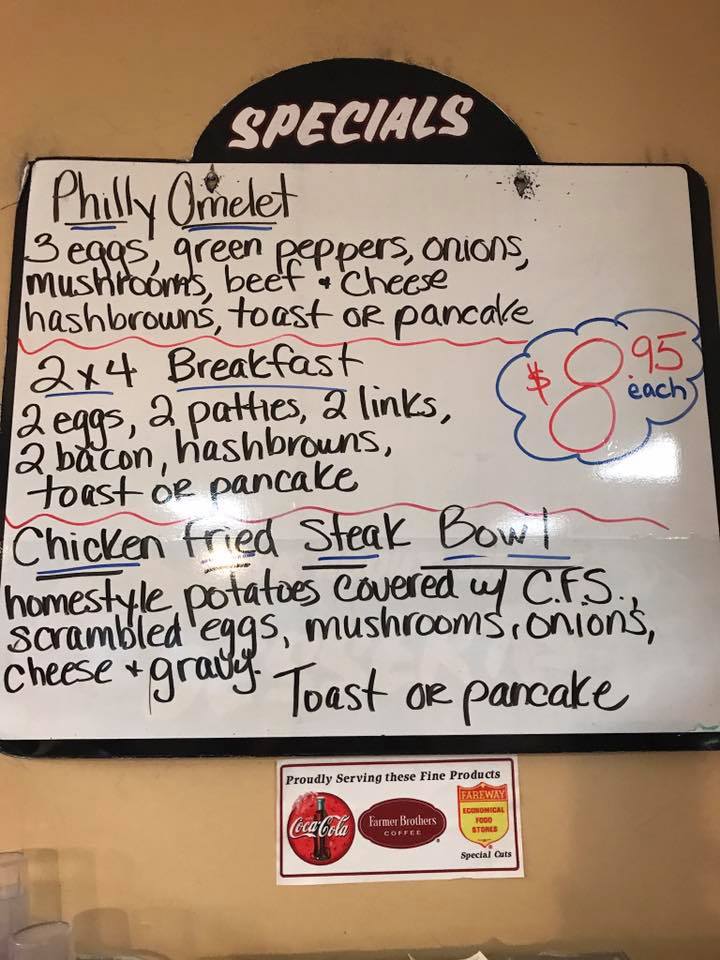 SPECIALS
Philly Omelet
3 eggs, green peppers, onions,
mushrooms, beef + Cheese
hashbrowns, toast or pancake
2x4 Breakfast
2 eggs, 2 patties, 2 links,
2 bacon, hashbrowns,
toast or pancake
$8.95
each
Chicken fried Steak Bowl
homestyle potatoes covered w/ C.F.S.,
scrambled eggs, mushrooms, onions,
cheese + gravy.
Toast or pancake
Proudly Serving these Fine Products
Coca-Cola
Farmer Brothers
COFFEE
FAREWAY
ECONOMICAL
FOOD
STORES
Special Cuts